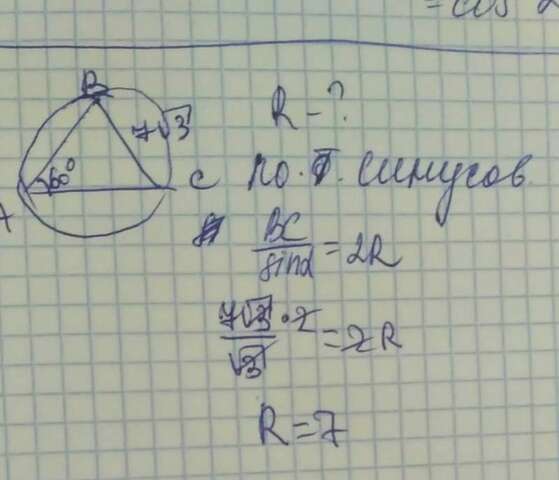 = cos
B
7√3
60°
C
A
R - ?
по т. синусов
BC/sinα = 2R
7√3·2/√3 = 2R
R = 7